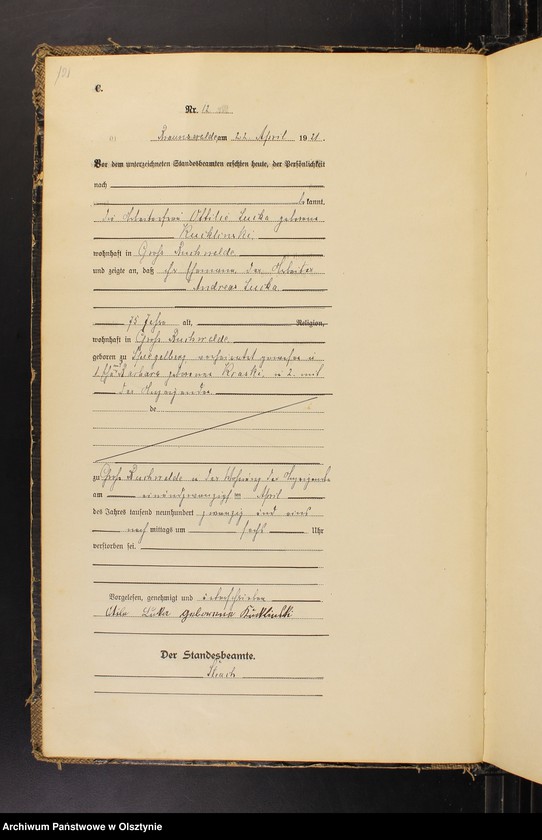 101
C.
Nr. 12
Braunswalde am 22 April 1921.
Vor dem unterzeichneten Standesbeamten erschien heute, der Persönlichkeit
nach
kannt,
die Arbeiterfrau Ottilie Lucka geborene
Kucklinski,
wohnhaft in Groß Buchwalde
und zeigte an, daß ihr Ehemann der Arbeiter
Andreas Lucka
75 Jahre alt, Religion,
wohnhaft in Groß Buchwalde
geboren zu Spiegelberg verheiratet gewesen in
1. Ehe Barbara geborene in 2. mit
der Anzeigenden.
de
zu Groß Buchwalde in der Wohnung der Anzeigende
am einundzwanzigsten April
des Jahres tausend neunhundert zwanzig und eins
nach mittags um sechs Uhr
verstorben sei.
Vorgelesen, genehmigt und unterschrieben
Lucka geborene Kucklinski
Der Standesbeamte.
Archiwum Państwowe w Olsztynie